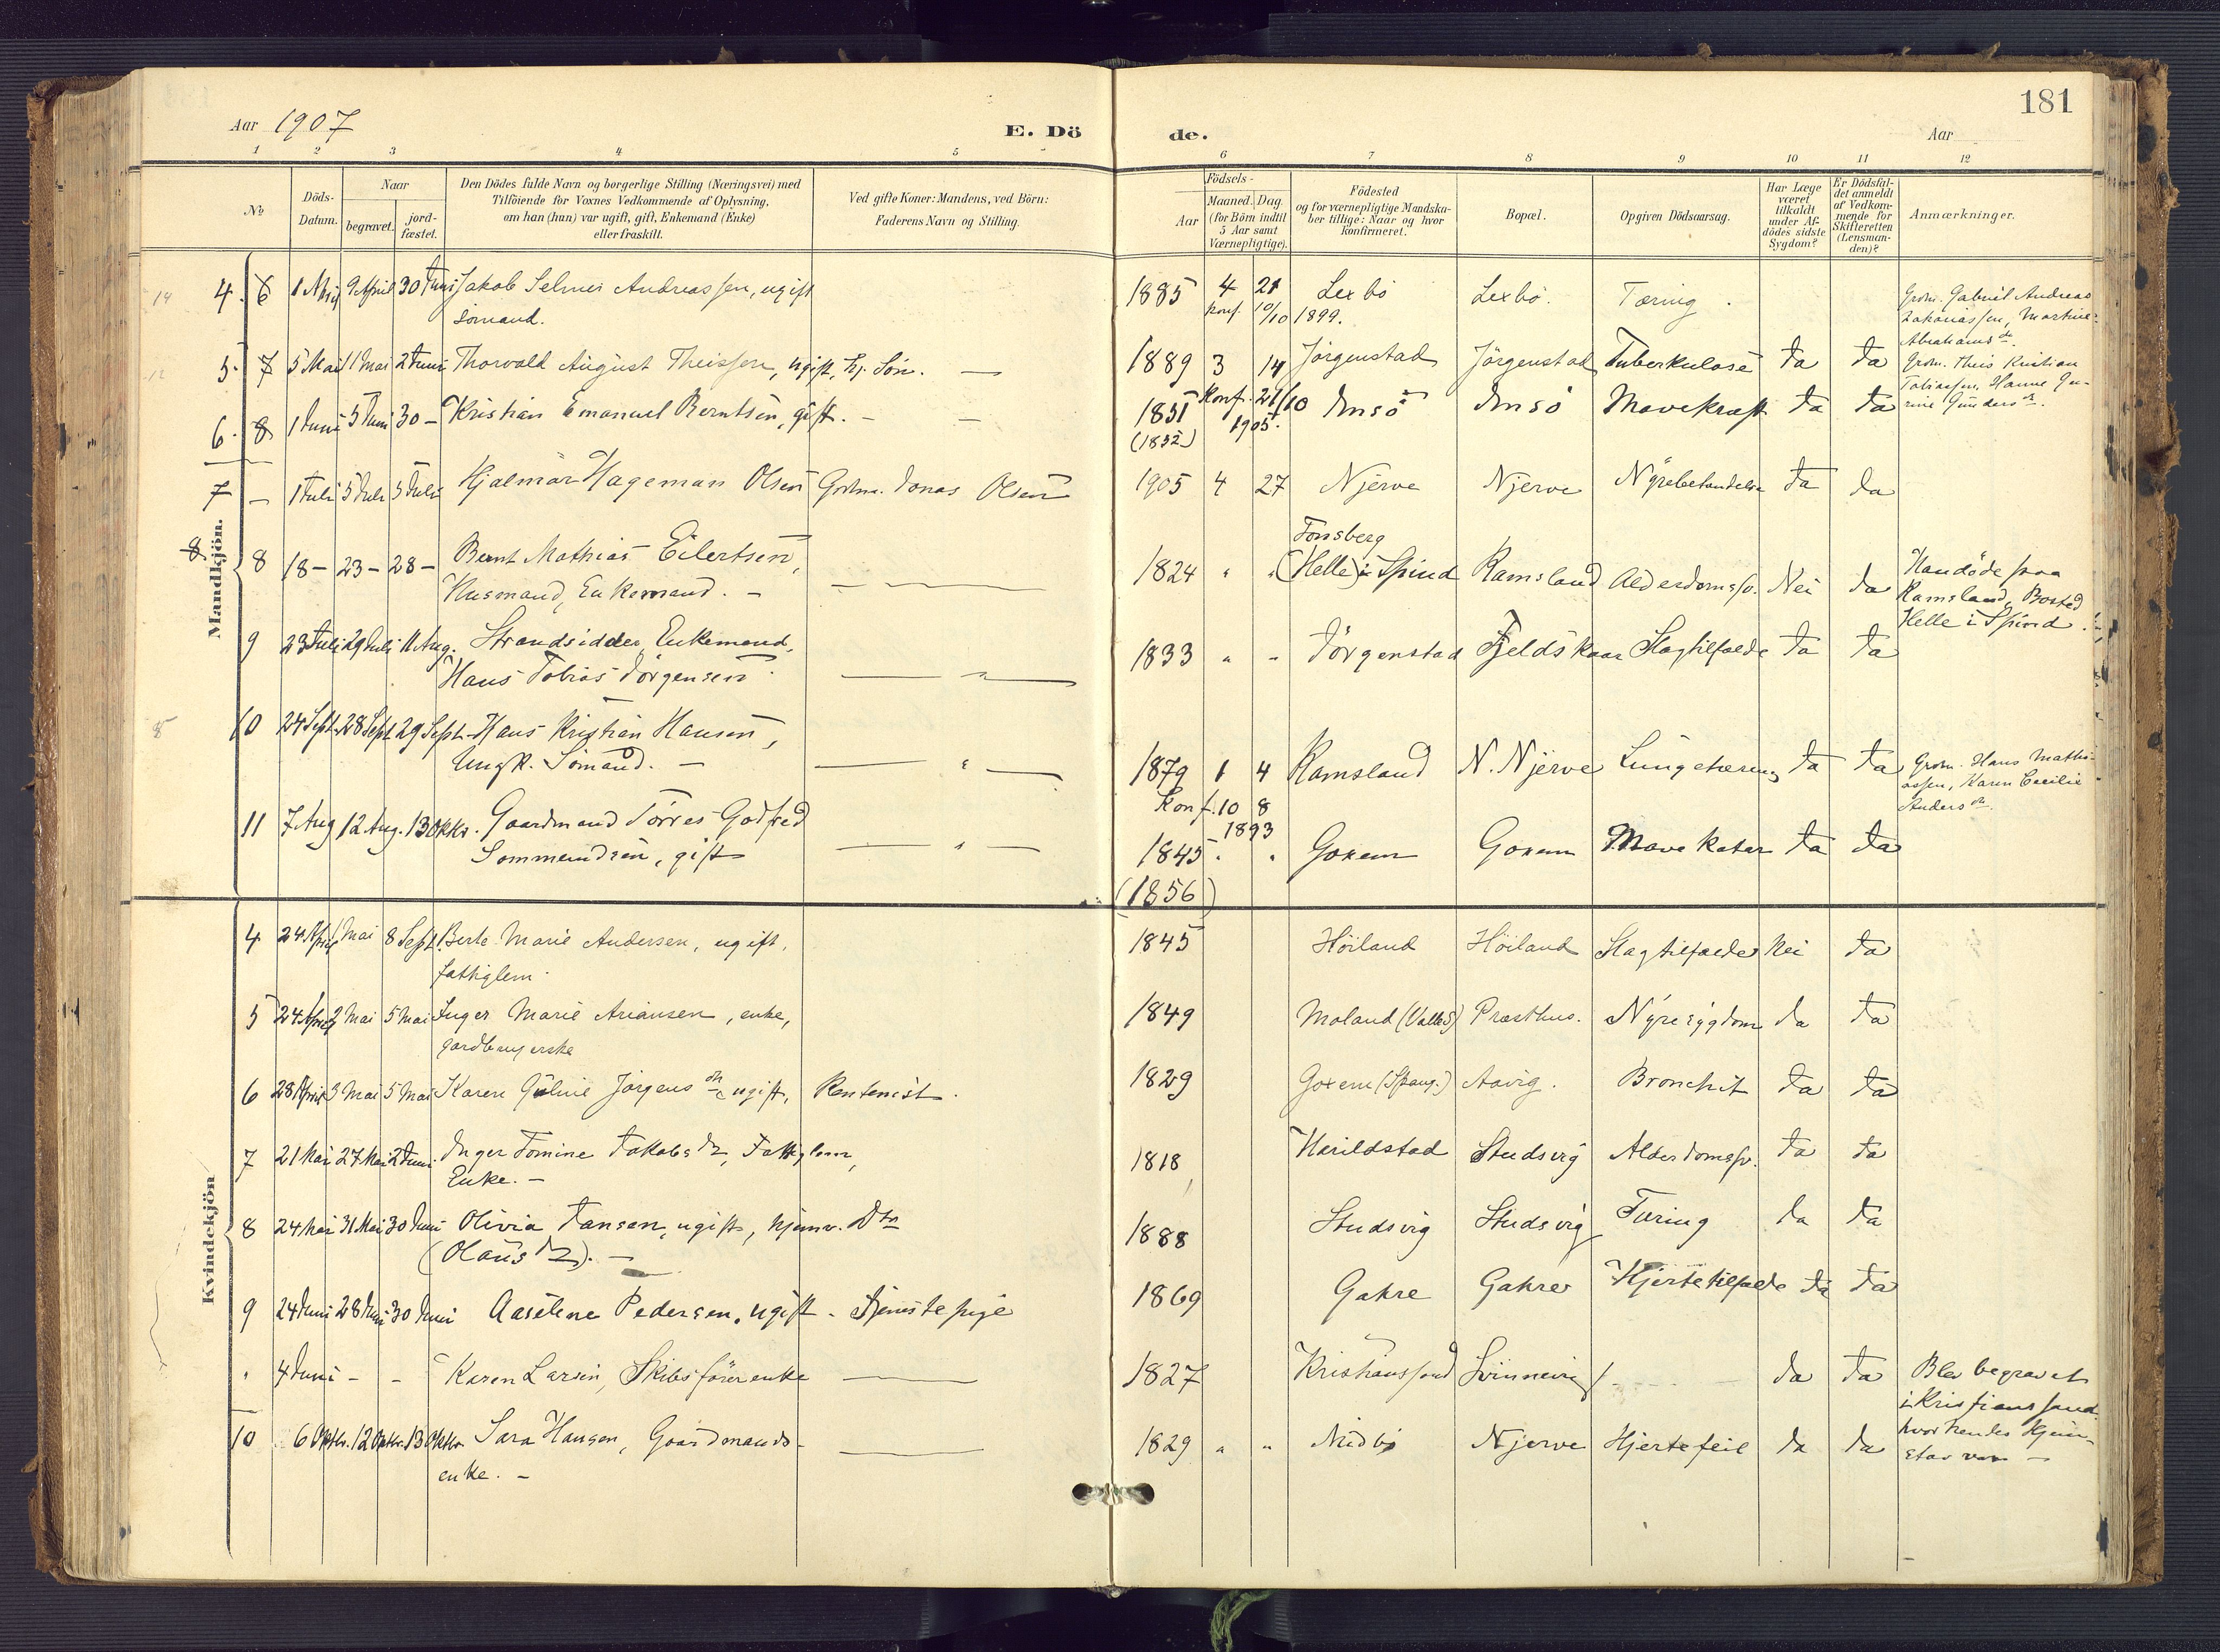 Aar 1907
E. Döde.
181
Aar
1 2 3 4 5 6 7 8 9 10 11 12
No
Döds-Datum.
Naar
begravet.
jord-fæstet.
Den Dödes fulde Navn og borgerlige Stilling (Næringsvei) med
Tilföiende for Voxnes Vedkommende af Oplysning,
om han (hun) var ugift, gift, Enkemand (Enke)
eller fraskilt.
Ved gifte Koner: Mandens, ved Börn:
Faderens Navn og Stilling.
Födsels-
Aar
Maaned. Dag.
(for Börn indtil
5 Aar samt
Værnepligtige).
Födested
og for værnepligtige Mandska-
ber tillige: Naar og hvor
konfirmeret.
Bopæl.
Opgiven Dödsaarsag.
Har Læge
været
tilkaldt
under Af-
dödes sidste
Sygdom?
Er Dödsfal-
det anmeldt
af Vedkom-
mende for
Skifteretten
(Lensman-
den)?
Anmærkninger.
Mandkjön.
14 4. 6 1 April 9 April 30 Juni Jakob Selmer Andreassen, ugift 1885 4 21 Lexbö Lexbö. Tæring. Grdm. Gabriel Andreas
sömand. konf. 10/10 1899. Zakariassen, Martine
Abrahamsdtr.
12 5. 7 5 Mai 11 Mai 2 Juni Thorvald August Theissen, ugift, Hj. Sön. — 1889 3 14 Jörgenstad Jörgenstad Tuberkulose Ja Ja Grdm. Theis Kristian
Konf. 21/10 1905. Tobiassen, Hanne Gu-
rine Gundersdtr.
6. 8 1 Juni 5 Juni 30 — Kristian Emanuel Berntsen, gift. — — 1831 Imsö Imsö Mavekræft Ja Ja
(1832)
7 — 1 Juli 5 Juli 5 Juli Hjalmar Hageman Olsen Grdm. Jonas Olsen 1905 4 27 Njerve Njerve Nyrebetændelse Ja Ja
8 8 18 — 23 — 28 — Bernt Mathias Eilertsen, Tonsberg
Husmand, Enkemand. — 1824 " " (Helle) i Spind Ramsland Alderdomssv. Nei Ja Han döde paa
Ramsland, Bosted
Helle i Spind.
9 23 Juli 29 Juli 11 Aug. Strandsidder, Enkemand,
Hans Tobias Jörgensen. 1833 " " Jörgenstad Fjeldskaar Slagtilfælde Ja Ja
5 10 24 Sept. 28 Sept 29 Sept. Hans Kristian Hansen,
Ungk. Sömand. — 1879 1 4 Ramsland N. Njerve Lungetæring Ja Ja Grdm. Hans Mathi-
Konf. 10 8 1893 assen, Karen Cecilie
Andersdtr.
11 7 Aug 12 Aug. 13 Oktr. Gaardmand Törres Godfred
Sommundsen, gift 1845 " " Goxem Goxem Mavekatar Ja Ja
(1856)
Kvindekjön
4 24 April 1 Mai 8 Sept. Berte Marie Andersen, ugift, 1845 Höiland Höiland Slagtilfælde Nei Ja
fattiglem.
5 24 April 2 Mai 5 Mai Inger Marie Ariansen, enke, 1849 Moland (Valle) Præsthus. Nyresygdom Ja Ja
gardbrugerske
6 28 April 3 Mai 5 Mai Karen Guline Jörgensdtr, ugift, Rentenist. 1829 Goxem (Spang.) Aavig. Bronchit Ja Ja
7 21 Mai 27 Mai 2 Juni Inger Tomine Jakobsdtr, Fattiglem, 1818 Harildstad Studsvig Alderdomssv. Ja Ja
Enke. —
8 24 Mai 31 Mai 30 Juni Olivia Jansen, ugift, hjemv. Dtr 1888 Studsvig Studsvig Tæring Ja Ja
(Olausdtr). —
9 24 Juni 28 Juni 30 Juni Aaselene Pedersen, ugift. Tjenestepige 1869 Gahre Gahre Hjertetilfælde Ja Ja
" 4 Juni — — Karen Larsen, Skibsförerenke 1827 Kristianssand Svinnevig — Ja Ja Blev begravet
i Kristianssand
hvor hendes Hjem-
stav var —
10 6 Oktbr. 12 Oktbr. 13 Oktbr Sara Hansen, Gaardmands-
enke. — 1829 " " Midbö Njerve Hjertefeil Ja Ja